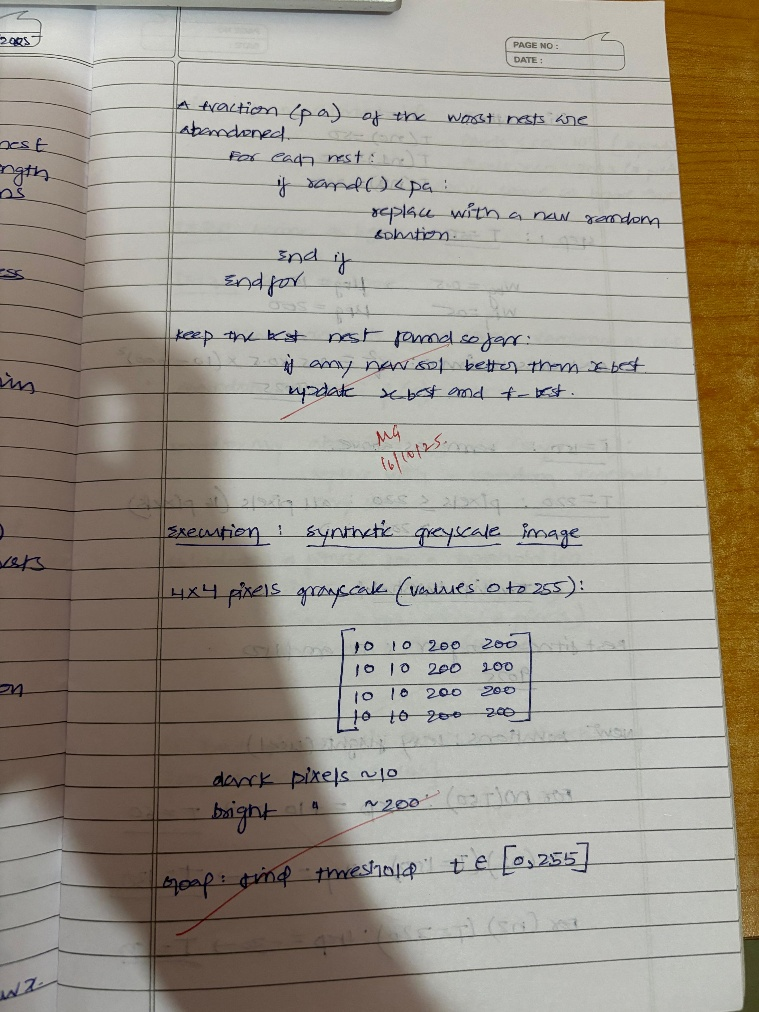 2025
nest
ngth
ns
ess
im
vers
on
PAGE NO :
DATE :
A fraction (pa) of the worst nests are
abandoned.
For each nest :
if rand() < pa :
replace with a new random
solution.
End if
End for
Keep the best nest found so far :
if any new sol better them x best
update x best and f-best.
MG
16/10/25.
Execution : synthetic greyscale image
4x4 pixels grayscale (values 0 to 255) :
10 10 200 200
10 10 200 200
10 10 200 200
10 10 200 200
dark pixels ~10
bright " ~200
goal : find threshold t ∈ [0,255]